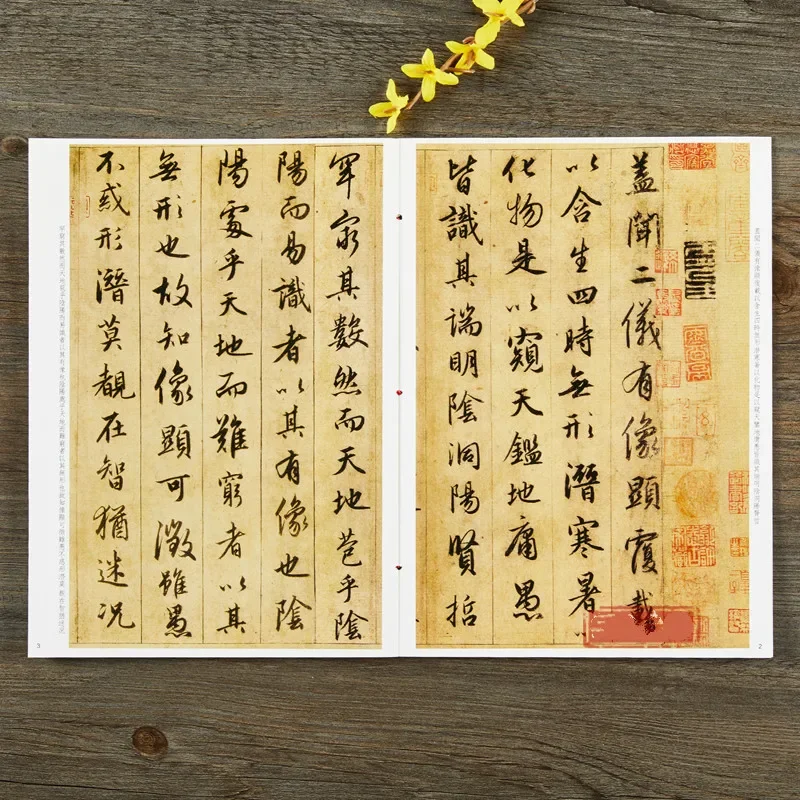 蓋聞二儀有像顯覆載
以含生四時無形潛寒暑以
化物是以窺天鑑地庸愚
皆識其端明陰洞陽賢哲
2
罕窮其數然而天地苞乎陰
陽而易識者以其有像也陰
陽處乎天地而難窮者以其
無形也故知像顯可徵雖愚
不惑形潛莫覩在智猶迷況
3